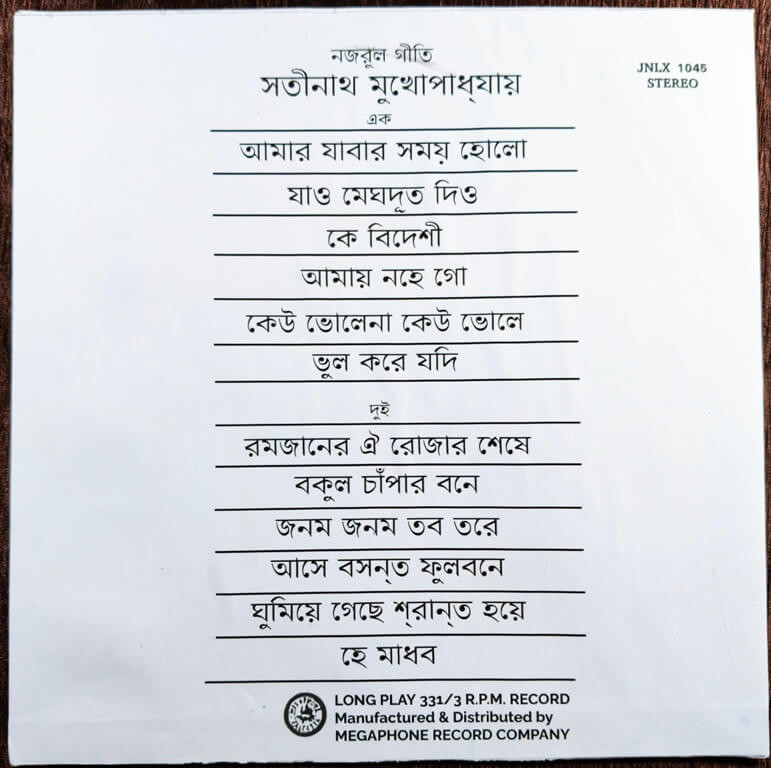 নজরুল গীতি
সতীনাথ মুখোপাধ্‌যায়
JNLX 1045
STEREO
এক
আমার যাবার সময় হোলো
যাও মেঘদূত দিও
কে বিদেশী
আমায় নহে গো
কেউ ভোলেনা কেউ ভোলে
ভুল করে যদি
দুই
রমজানের ঐ রোজার শেষে
বকুল চাঁপার বনে
জনম জনম তব তরে
আসে বসন্‌ত ফুলবনে
ঘুমিয়ে গেছে শ্‌রান্‌ত হয়ে
হে মাধব
LONG PLAY 331/3 R.P.M. RECORD
Manufactured & Distributed by
MEGAPHONE RECORD COMPANY